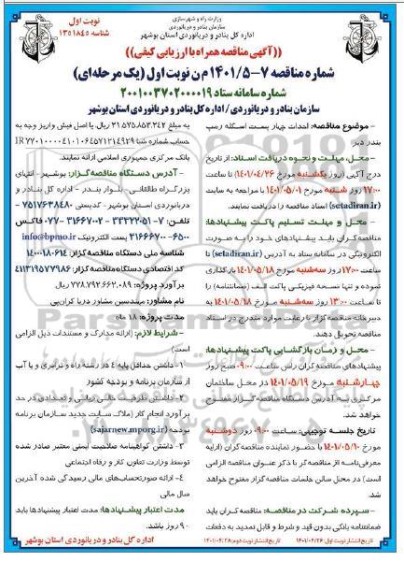 وزارت راه و شهرسازی
سازمان بنادر و دریانوردی
اداره کل بنادر و دریانوردی استان بوشهر
نوبت اول
شناسه ۱۳۵۱۸۴۵
((آگهی مناقصه همراه با ارزیابی کیفی))
شماره مناقصه ۷-۱۴۰۱/۵ م ن نوبت اول (یک مرحله‌ای)
شماره سامانه ستاد ۲۰۰۱۰۰۳۷۰۲۰۰۰۰۱۹
سازمان بنادر و دریانوردی / اداره کل بنادر و دریانوردی استان بوشهر
- موضوع مناقصه: احداث چهار پست اسکله رمپ
بندر دیر.
- محل، مهلت و نحوه دریافت اسناد: از تاریخ
درج آگهی (روز یکشنبه مورخ ۱۴۰۱/۰۴/۲۶) تا ساعت
۱۷:۰۰ روز شنبه مورخ ۱۴۰۱/۰۵/۰۱ با مراجعه به سایت
(setadiran.ir) اسناد مناقصه را دریافت نمایند.
- محل و مهلت تسلیم پاکت پیشنهادها:
مناقصه‌گران باید پیشنهادهای خود را به صورت
الکترونیکی در سامانه ستاد به آدرس (setadiran.ir) تا
ساعت ۱۷:۰۰ روز سه‌شنبه مورخ ۱۴۰۱/۰۵/۱۸ بارگذاری
نموده و تنها نسخه فیزیکی پاکت الف (ضمانتنامه) را
تا ساعت ۱۳:۰۰ روز سه‌شنبه مورخ ۱۴۰۱/۰۵/۱۸ به
دبیرخانه مناقصه‌گزار با رعایت موارد مندرج در اسناد
مناقصه تحویل دهند.
- محل و زمان بازگشایی پاکت پیشنهادها:
پیشنهادهای مناقصه گران راس ساعت ۰۹:۰۰ صبح روز
چهارشنبه مورخ ۱۴۰۱/۰۵/۱۹ در محل ساختمان
مرکزی به آدرس دستگاه مناقصه گزار مفتوح
خواهد شد.
تاریخ جلسه توجیهی: ساعت ۰۹:۰۰ روز دوشنبه
مورخ ۱۴۰۱/۰۵/۱۰ با حضور نماینده مناقصه گران (ارایه
معرفی‌نامه از مناقصه گر با ذکر عنوان مناقصه الزامی
است) در محل سالن جلسات مناقصه گزار مفتوح خواهد
شد.
- سپرده شرکت در مناقصه: مناقصه گران باید
ضمانتنامه بانکی بدون قید و شرط و قابل تمدید به دفعات
به مبلغ ۳۱،۵۷۵،۸۵۳،۲۴۷ ریال، یا اصل فیش واریز وجه به
حساب شماره شبا
بانک مرکزی جمهوری اسلامی ارائه نمایند.
- آدرس دستگاه مناقصه‌گزار: بوشهر - انتهای
بزرگراه طالقانی - بلوار بندر - اداره کل بنادر و
دریانوردی استان بوشهر - کدپستی ۷۵۱۷۶۳۸۴۸۰
info@bpmo.ir
شناسه ملی دستگاه مناقصه گزار:
کد اقتصادی دستگاه مناقصه گزار: ۴۱۱۳۱۹۵۷۷۹۸۶
برآورد پروژه: ۷۷۸،۷۹۲،۶۶۲،۰۸۹ ریال
نام مشاور: مهندسین مشاور دریا کران‌پی
مدت پروژه: ۱۸ ماه
- شرایط لازم: (ارائه مدارک و مستندات ذیل الزامی
است)
۱- داشتن حداقل پایه ۴ در رشته راه و ترابری و یا آب
از سازمان برنامه و بودجه کشور
۲- داشتن ظرفیت خالی ریالی و تعدادی در حد
برآورد انجام کار (ملاک سایت جدید سازمان برنامه
بودجه) (sajarnew.mporg.ir)
۳- داشتن گواهینامه صلاحیت ایمنی معتبر صادر شده
توسط وزارت تعاون کار و رفاه اجتماعی
۴- ارائه صورتحساب‌های مالی رسیدگی شده آخرین
سال مالی
مدت اعتبار پیشنهادها: مدت اعتبار پیشنهادها باید
۹۰ روز باشد.
تاریخ انتشار نوبت اول: ۱۴۰۱/۰۴/۲۶
تاریخ انتشار نوبت دوم: ۱۴۰۱/۰۴/۲۸
اداره کل بنادر و دریانوردی استان بوشهر